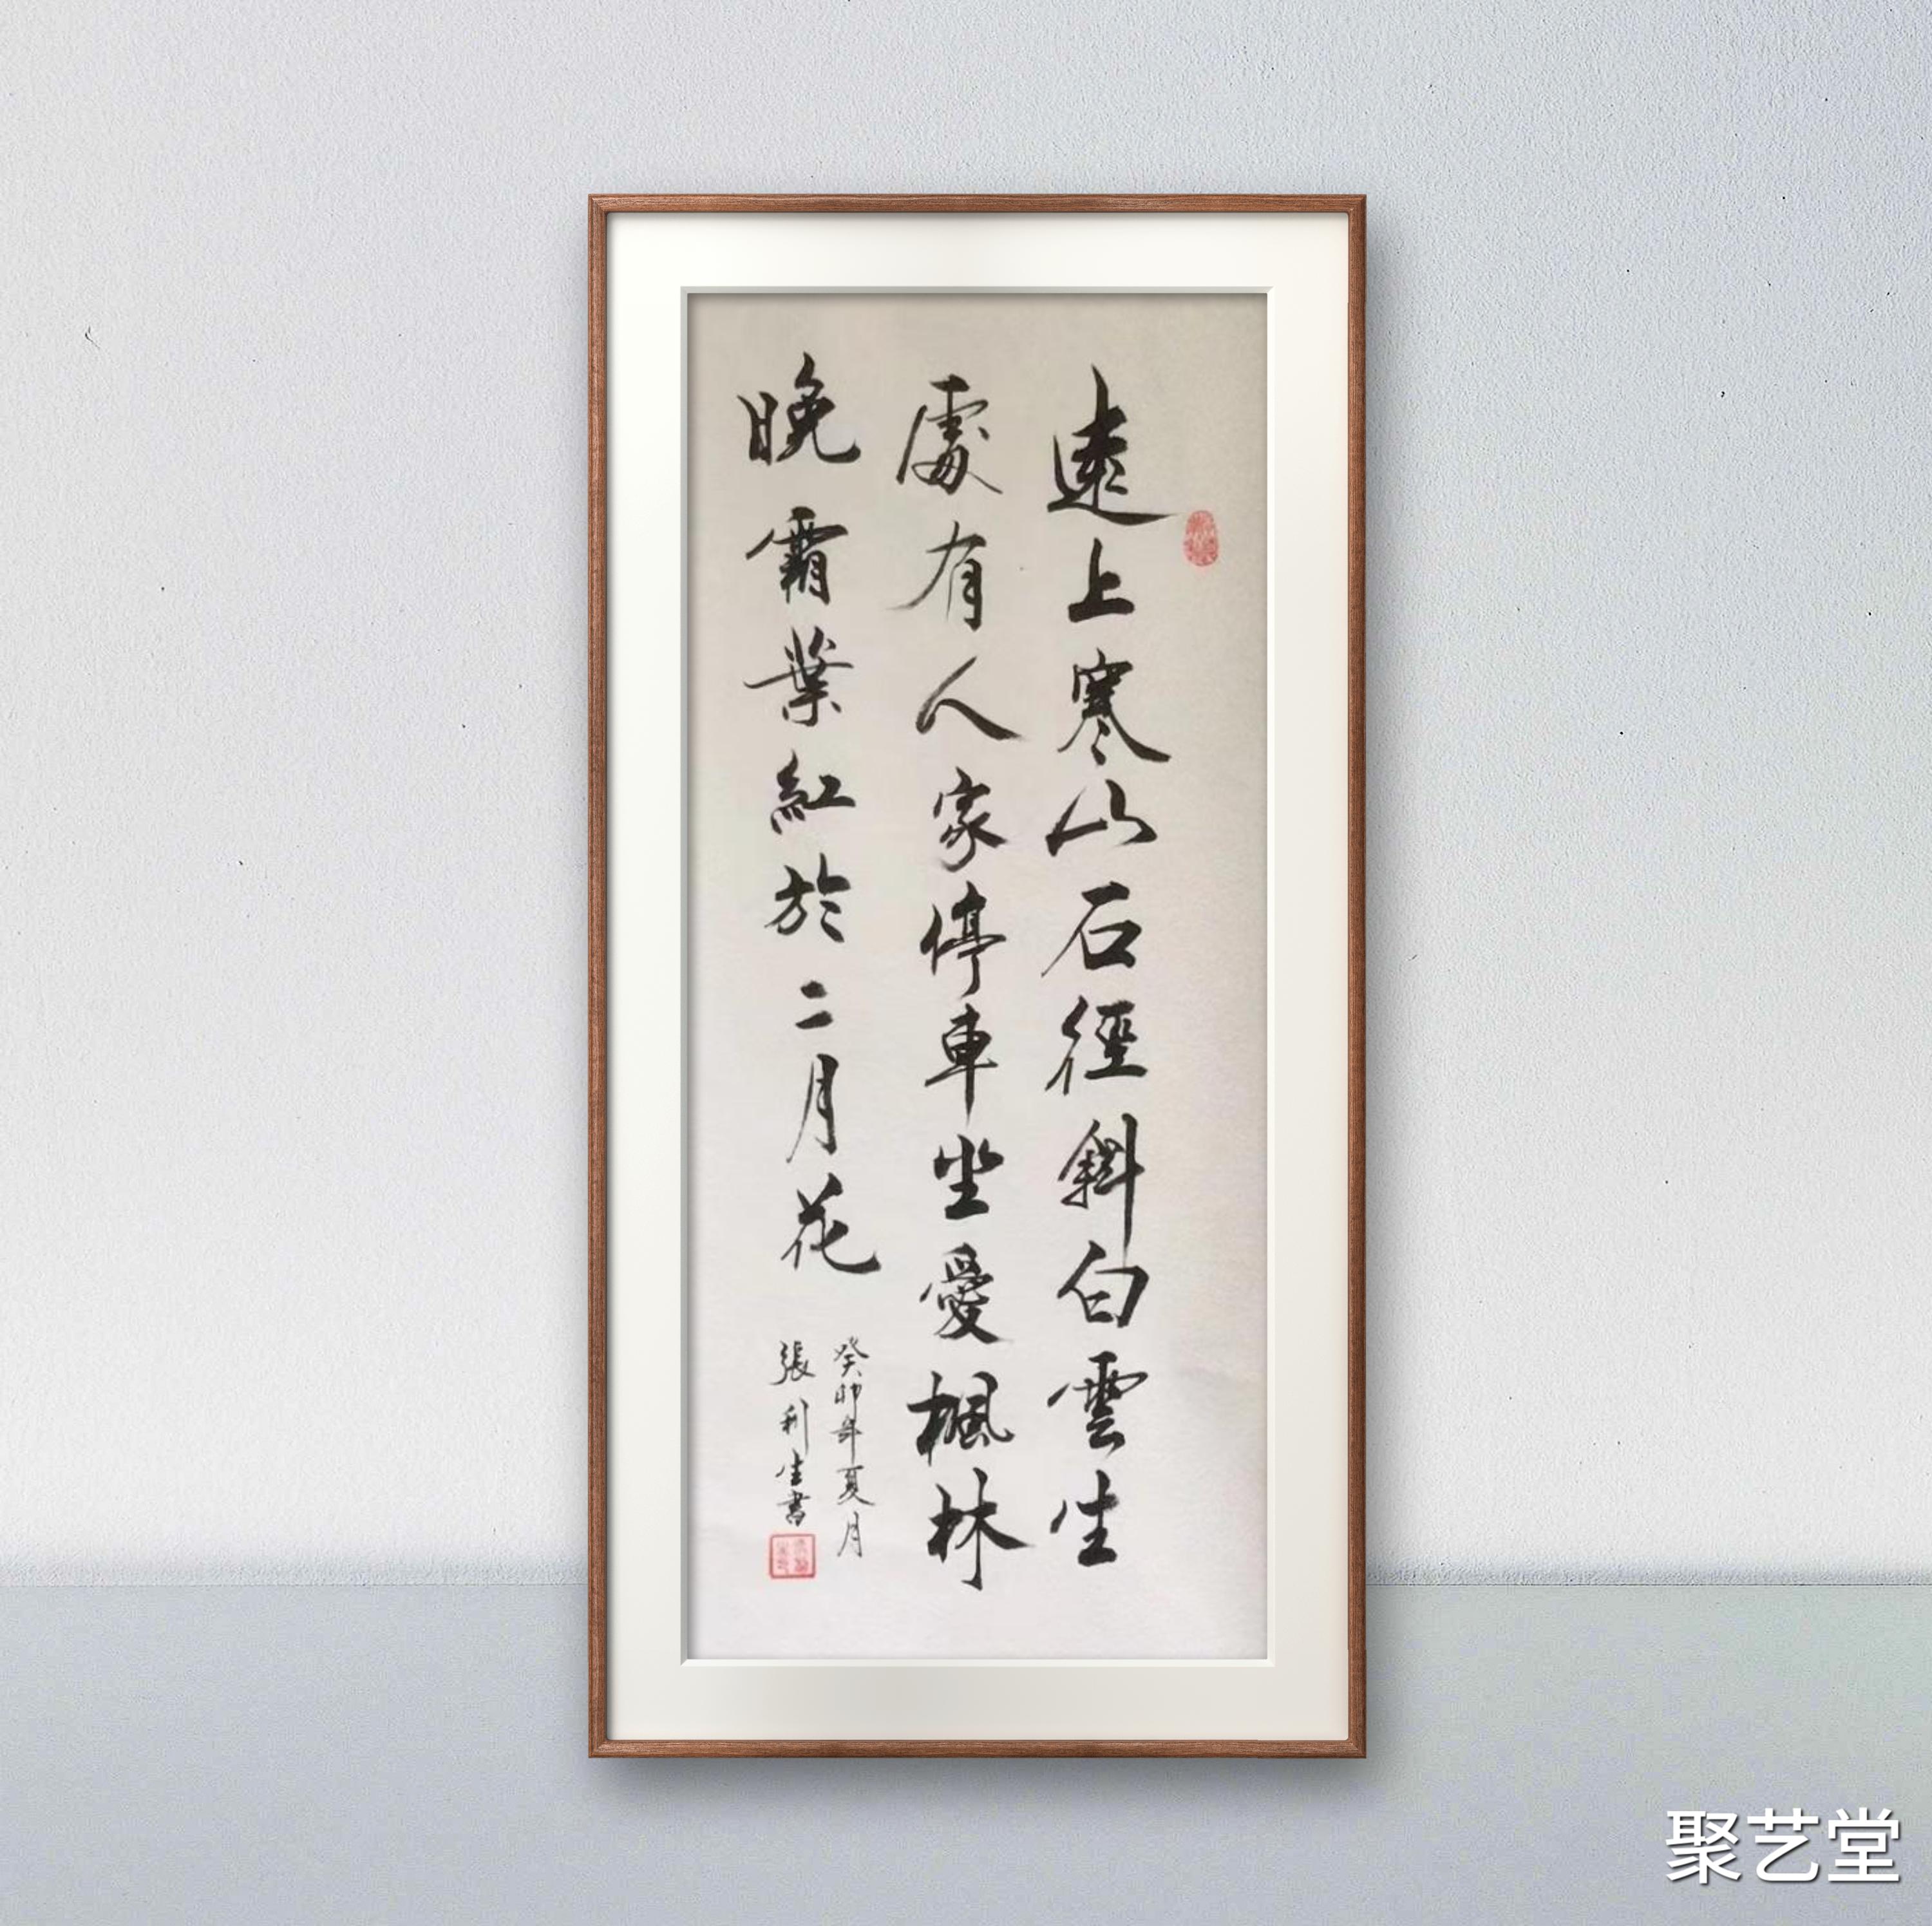 遠上寒山石徑斜白雲生
處有人家停車坐愛楓林
晚霜葉紅於二月花
癸卯年夏月
張利生書
聚艺堂